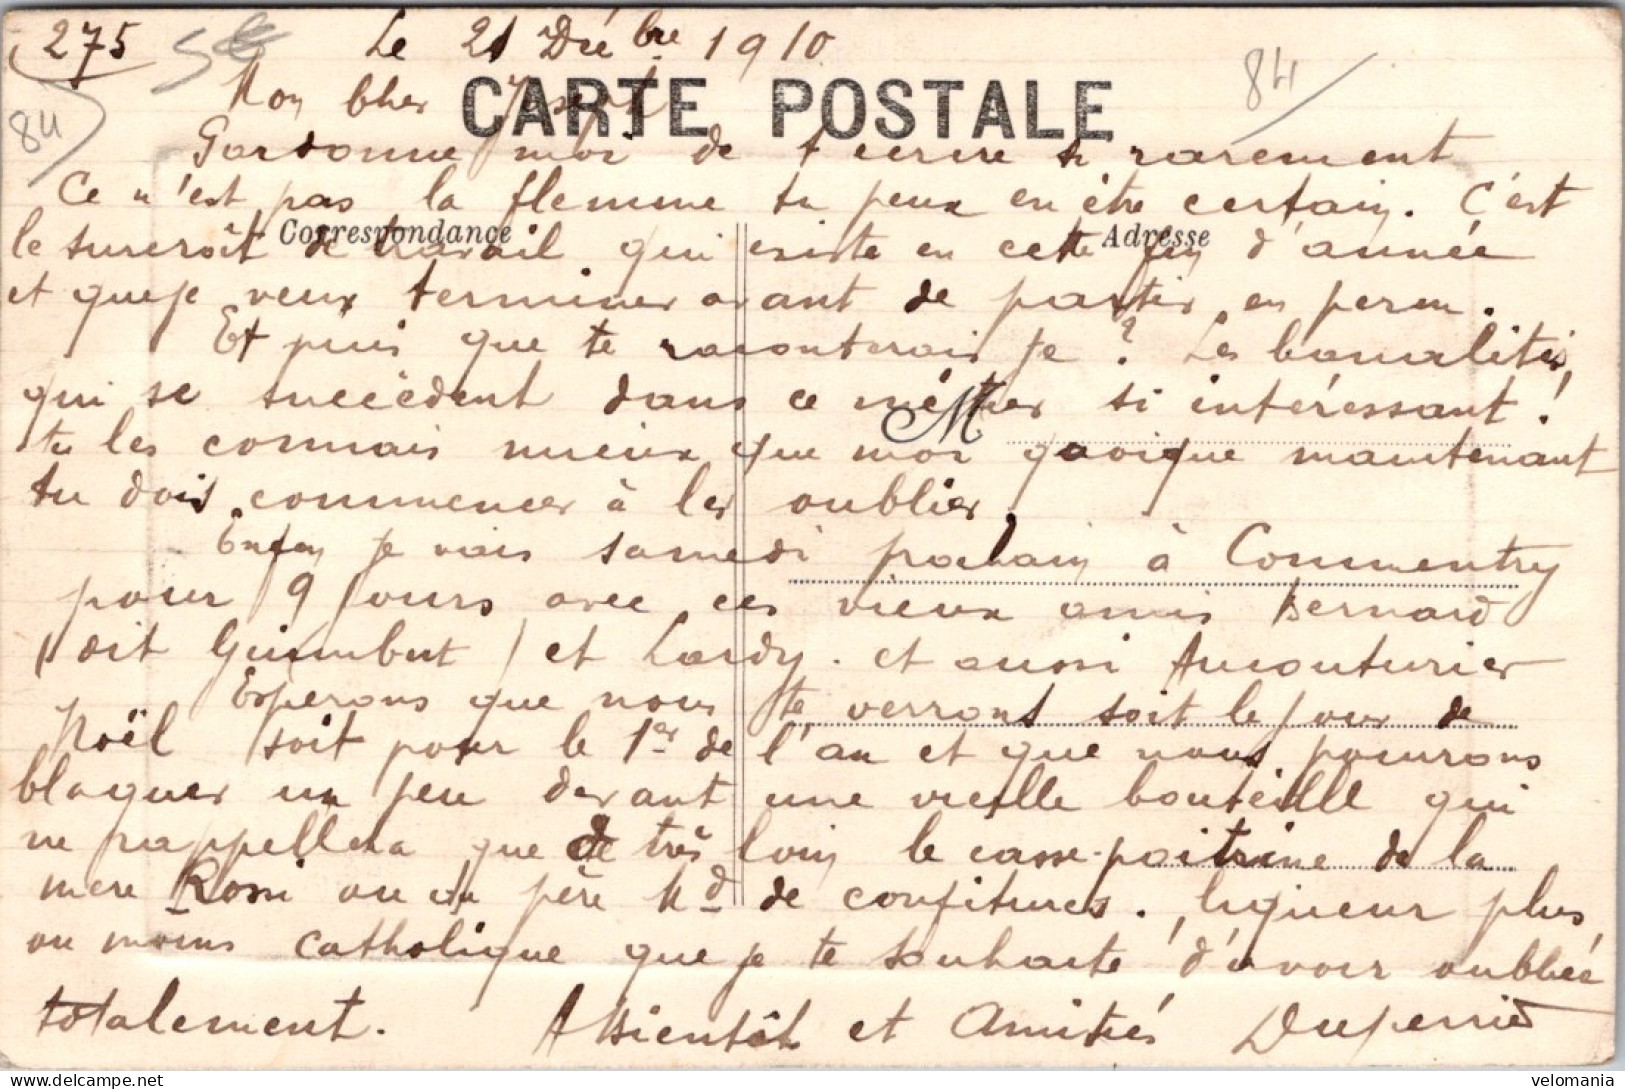 275 5€ Le 21 Décbre 1910
84 Mon cher 84
CARTE POSTALE
Pardonne moi de t'ecrire si rarement
Ce n'est pas la flemme tu peux en être certain. C'est
Correspondance Adresse
le surcroît de travail qui existe en cette fin d'année
et que je veux terminer avant de partir en perm.
Et puis que te raconterais je ? Les banalités,
qui se succèdent dans ce métier si intéressant !
M
tu les connais mieux que moi quoique maintenant
tu dois commencer à les oublier.
Enfin je vais samedi prochain à Commentry
pour 9 jours avec ces vieux amis Bernard
(dit Guimbut) et Lardy. et aussi Aucouturier
Esperons que nous te verrons soit le jour de
Noël soit pour le 1er de l'an et que nous pourrons
blaguer un peu devant une vieille bouteille qui
ne rappellera que de très loin le casse-poitrine de la
mere Rossi ou du père Md de confitures. liqueur plus
ou moins catholique que je te souhaite d'avoir oubliée
totalement. A Bientôt et Amitiés Duperrier
velomania